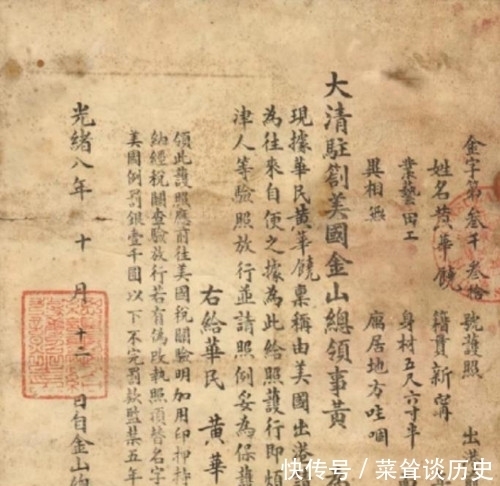 金字第叁千叁拾 號護照 出港
姓名黄華饒 籍貫新寧
業藝田工 身材五尺六寸半
異相無 寓居地方哇嗰
大清駐劄美國金山總領事黄
現據華民黄華饒稟稱由美國出港
為往來自便之據為此給照護行即煩
津人等驗照放行並請照例妥為保護
右給華民 黄華
領此護照應前往美國稅關驗明加用印押持
納經稅關查驗放行若有偽改執照頂替名字
美國例罰銀壹千圓以下不完罰欵監禁五年
光緒八年 十 月 十二 日自金山總
快传号/菜耸谈历史